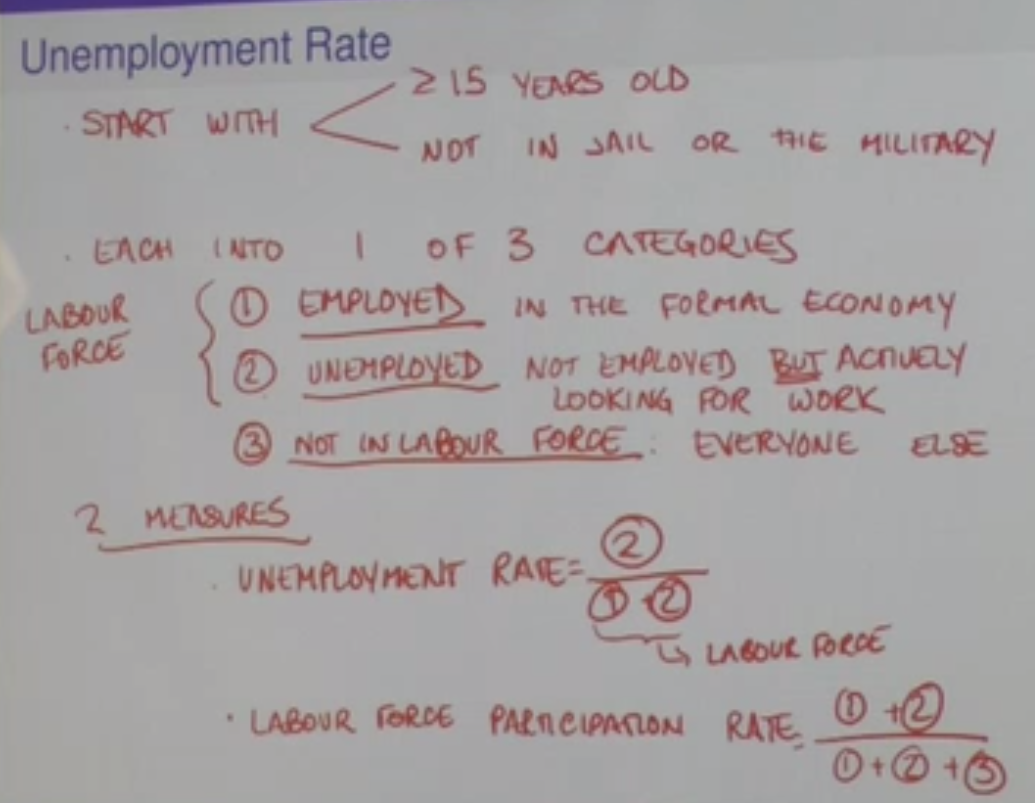 Unemployment Rate
≥ 15 YEARS OLD
· START WITH
NOT IN JAIL OR THE MILITARY
· EACH INTO 1 OF 3 CATEGORIES
LABOUR FORCE
① EMPLOYED IN THE FORMAL ECONOMY
② UNEMPLOYED NOT EMPLOYED BUT ACTIVELY
LOOKING FOR WORK
③ NOT IN LABOUR FORCE : EVERYONE ELSE
2 MEASURES
· UNEMPLOYMENT RATE = ② / ① + ②
↳ LABOUR FORCE
· LABOUR FORCE PARTICIPATION RATE = ① + ② / ① + ② + ③